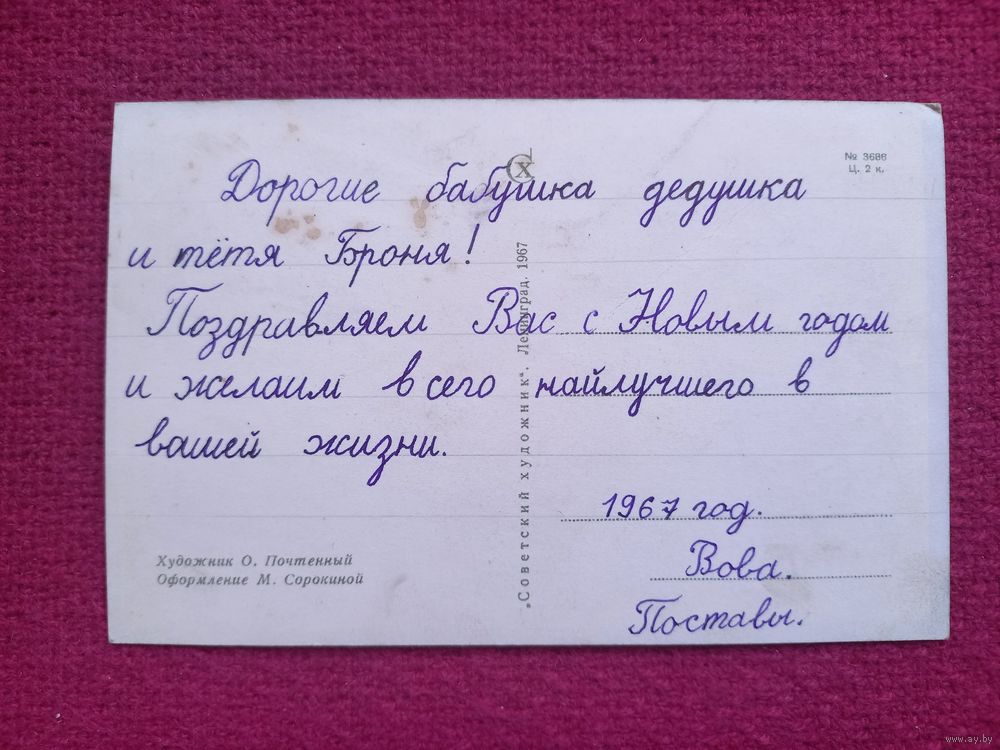 № 3686
Ц. 2 к.
СХ
Дорогие бабушка дедушка
и тётя Броня!
Поздравляем Вас с Новым годом
и желаим всего найлучшего в
вашей жизни.
1967 год.
Вова.
Поставы.
„Советский художник“. Ленинград. 1967
Художник О. Почтенный
Оформление М. Сорокиной
www.ay.by